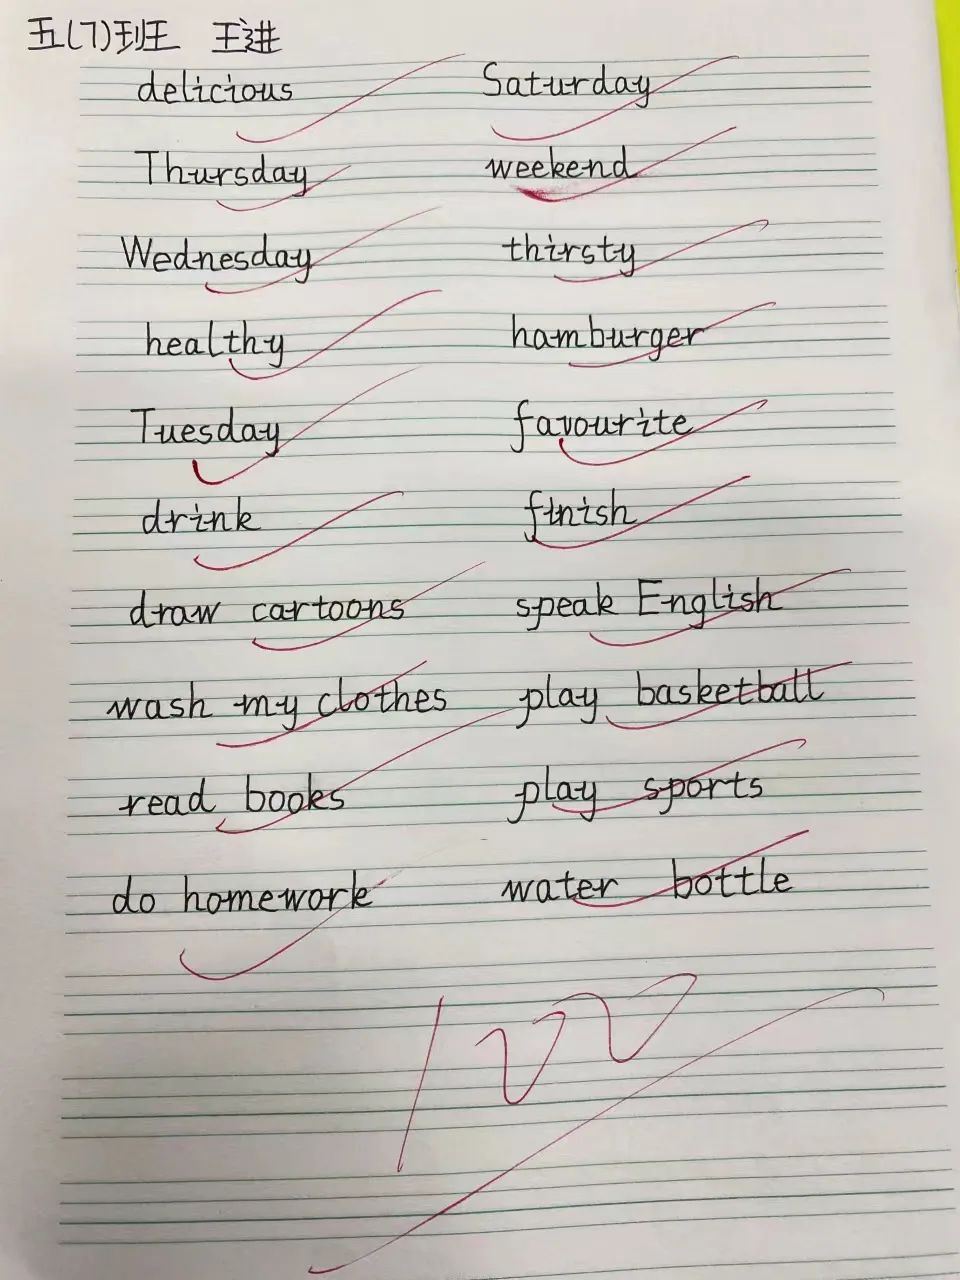 五(7)班 王进
delicious Saturday
Thursday weekend
Wednesday thirsty
healthy hamburger
Tuesday favourite
drink finish
draw cartoons speak English
wash my clothes play basketball
read books play sports
do homework water bottle
100